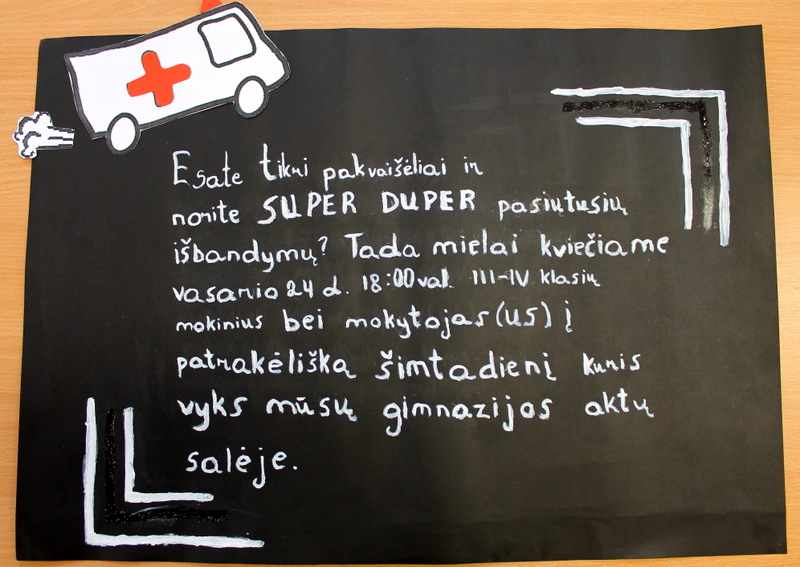 Esate tikri pakvaišėliai ir
norite SUPER DUPER pasiutusių
išbandymų? Tada mielai kviečiame
vasario 24 d. 18:00 val. III-IV klasių
mokinius bei mokytojas(us) į
patrakėlišką šimtadienį kuris
vyks mūsų gimnazijos aktų
salėje.